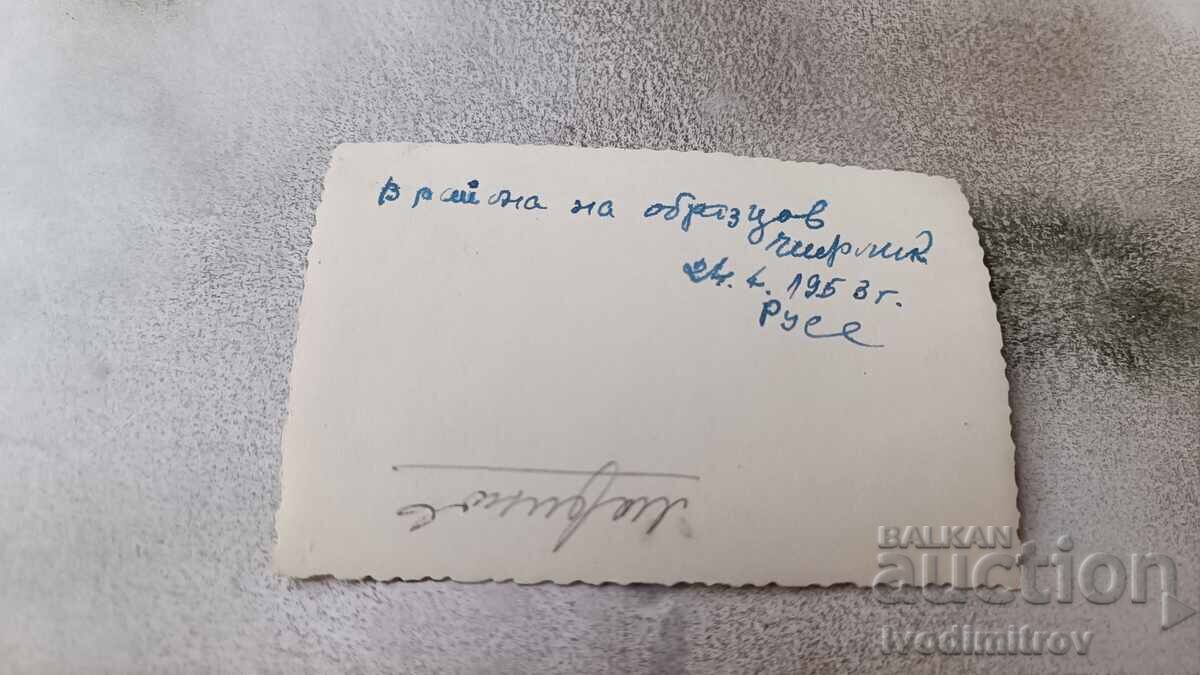 в района на образцов
чифлик
24. 4. 1953 г.
Русе
Маринов
BALKAN
auction
ivodimitrov